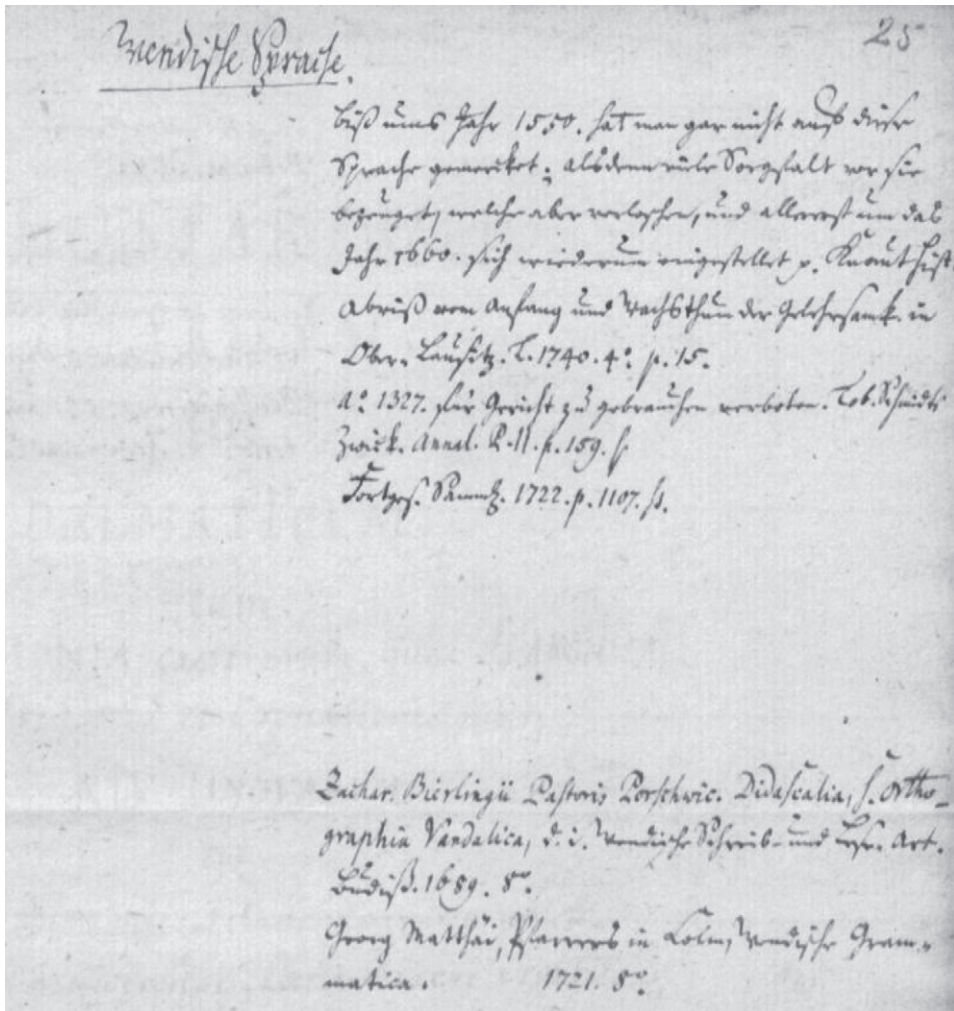 25
Wendische Sprache.
biß ums Jahr 1550. hat man gar nicht auf diese
Sprache gemerket; alsdenn viele Sorgfalt vor sie
bezeuget, welche aber verloschen, und allererst um das
Jahr 1660. sich wiederum eingestellet p. Knauth Hist.
Abriß vom Anfang und Wachsthum der Gelehrsamk. in
Ober-Lausitz. L. 1740. 4° p. 15.
A° 1327. für Gericht zu gebrauchen verboten. Tob. Schmidts
Zwick. Annal. P. II. p. 159. s.
Fortges. Samml. 1722. p. 1107. ss.
Zachar. Bierlingii Pastoris Porschwic. Didascalia, s. Ortho-
graphia Vandalica, d. i. Wendische Schreib- und Lese-Art.
Budiß. 1689. 8°.
Georg Matthäi, Pfarrers in Colm, Wendische Gram-
matica. 1721. 8°.